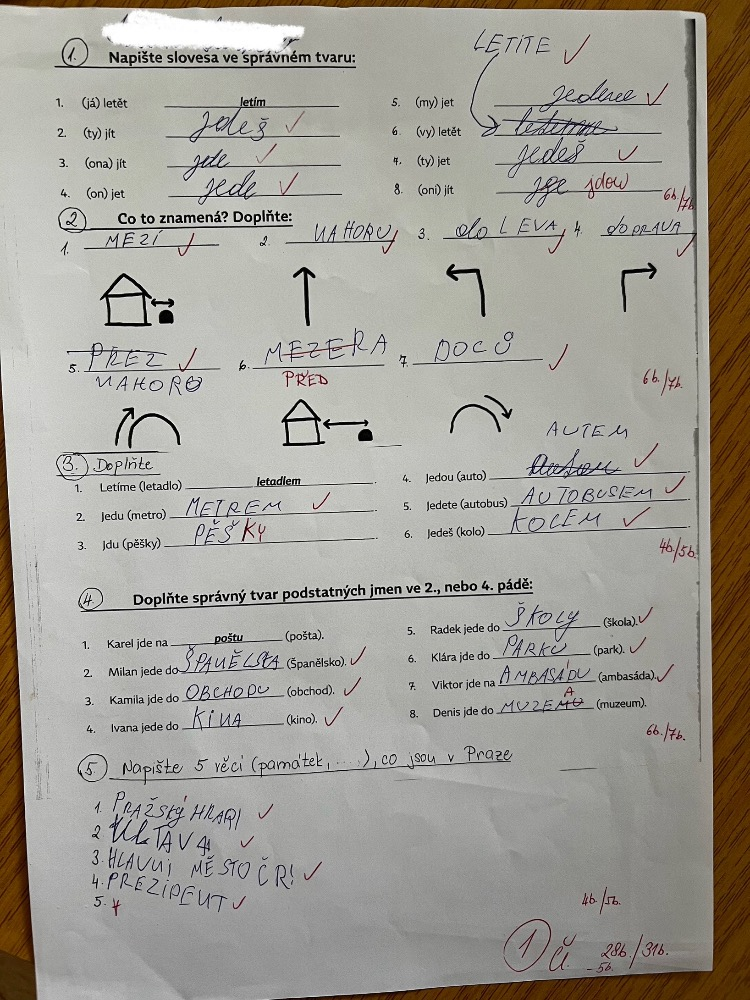 LETÍTE ✓
1. Napište slovesa ve správném tvaru:
1. (já) letět letím
2. (ty) jít jdeš ✓
3. (ona) jít jde ✓
4. (on) jet jede ✓
5. (my) jet jedeme ✓
6. (vy) letět
7. (ty) jet jedeš ✓
8. (oni) jít jdou
6b./7b.
2. Co to znamená? Doplňte:
1. MEZI ✓ 2. NAHORU ✓ 3. do LEVA ✓ 4. doPRAVA ✓
5. PŘEZ ✓ 6. MEZERA 7. DOLŮ ✓
NAHORU PŘED
6b./7b.
3. Doplňte
1. Letíme (letadlo) letadlem.
2. Jedu (metro) METREM ✓
3. Jdu (pěšky) PĚŠKY
AUTEM
4. Jedou (auto) ✓
5. Jedete (autobus) AUTOBUSEM ✓
6. Jedeš (kolo) KOLEM ✓
4b./5b.
4. Doplňte správný tvar podstatných jmen ve 2., nebo 4. pádě:
1. Karel jde na poštu (pošta).
2. Milan jede do ŠPANĚLSKA (Španělsko). ✓
3. Kamila jde do OBCHODU (obchod). ✓
4. Ivana jede do KINA (kino). ✓
5. Radek jede do ŠKOLY (škola). ✓
6. Klára jde do PARKU (park). ✓
7. Viktor jde na AMBASÁDU (ambasáda). ✓
8. Denis jde do MUZEA (muzeum).
6b./7b.
5. Napište 5 věcí (památek, ...), co jsou v Praze
1. PRAŽSKÝ HRAD ✓
2. VLTAVA ✓
3. HLAVNÍ MĚSTO ČR! ✓
4. PREZIDENT ✓
5.
4b./5b.
1 28b./31b.
-5b.